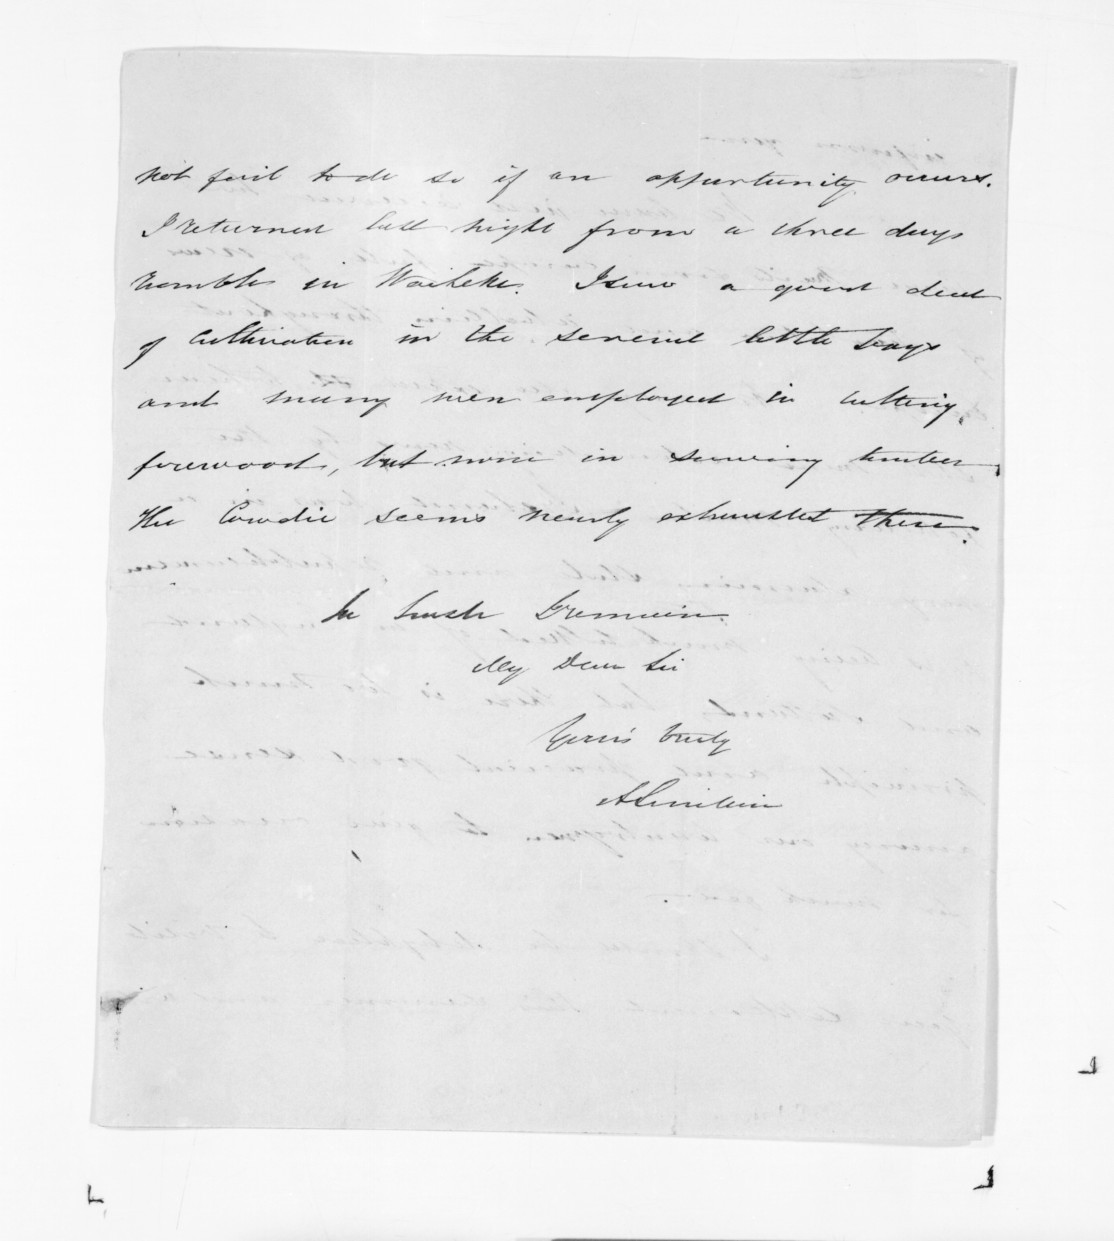 not fail to do so if an oppurtunity occurs.
I returned last night from a three days
ramble in Waiheke. I saw a good deal
of cultivation in the several little bays
and many men employed in cutting
firewood, but none in sawing timber,
the Cowdie seems nearly exhausted there.
In haste I remain
My Dear Sir
Yours truly
A Sinclair